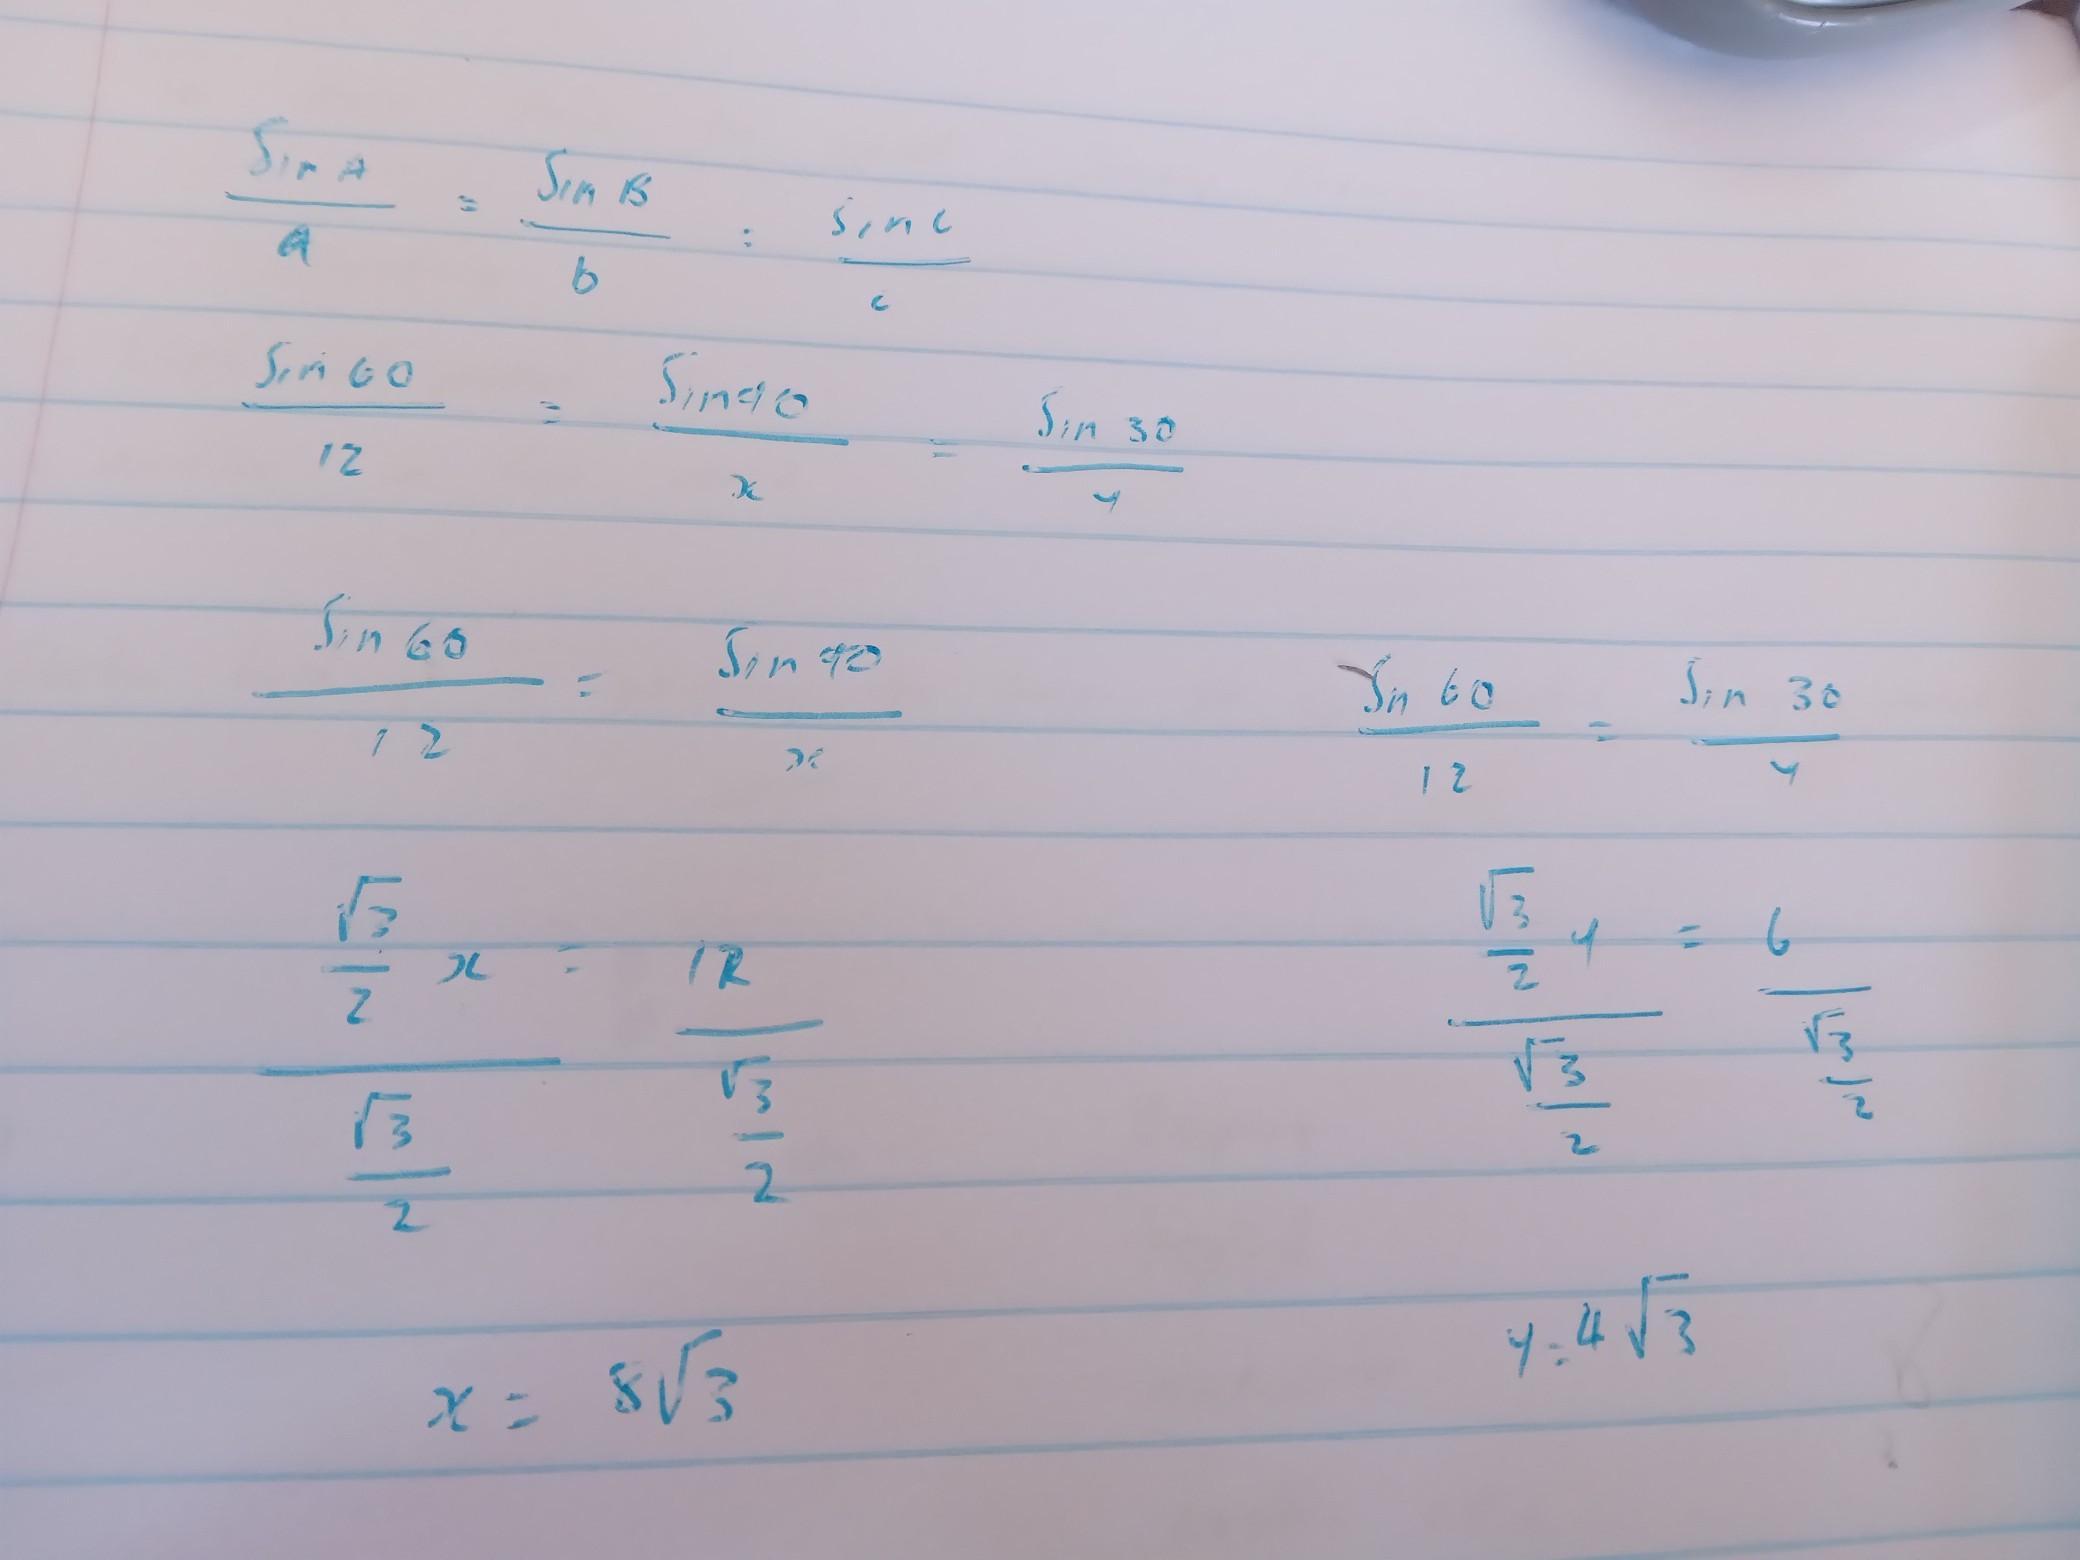 Sin A / a = Sin B / b = Sin C / c
Sin 60 / 12 = Sin 90 / x = Sin 30 / y
Sin 60 / 12 = Sin 90 / x
Sin 60 / 12 = Sin 30 / y
(√3/2 x) / (√3/2) = 12 / (√3/2)
(√3/2 y) / (√3/2) = 6 / (√3/2)
x = 8√3
y = 4√3